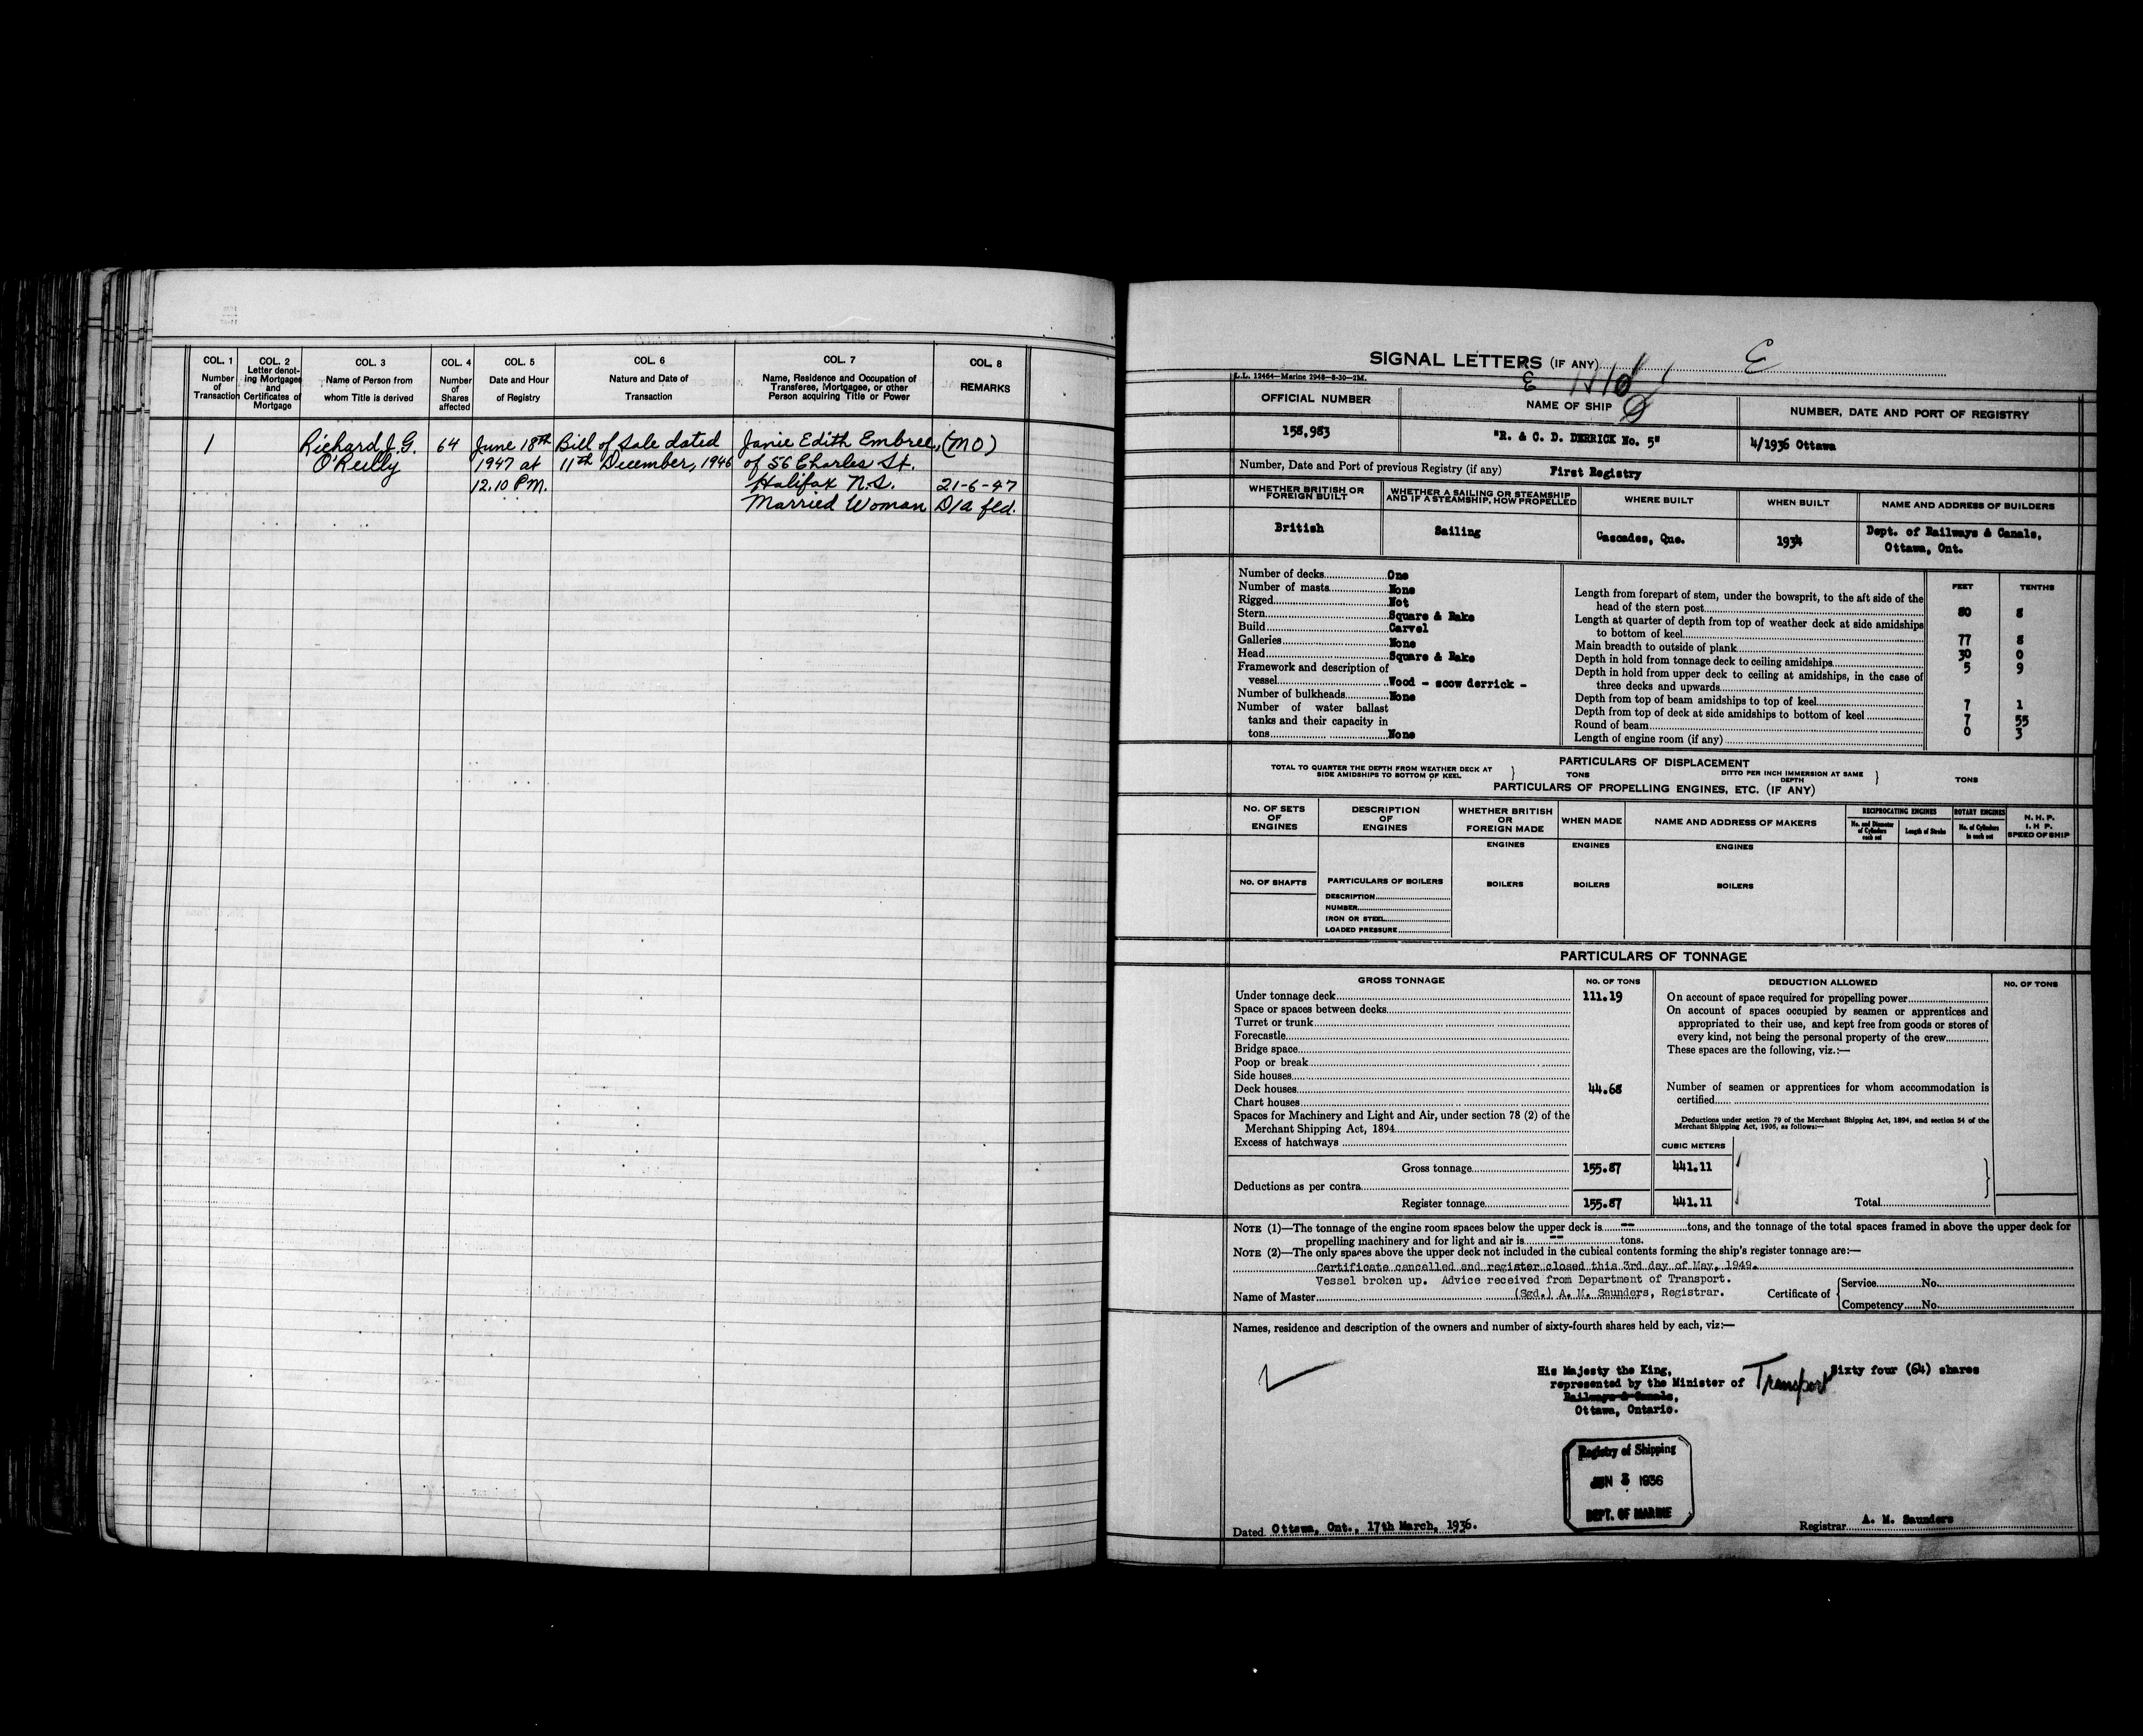 COL. 1
Number
of
Transaction
COL. 2
Letter denot-
ing Mortgages
and
Certificates of
Mortgage
COL. 3
Name of Person from
whom Title is derived
COL. 4
Number
of
Shares
affected
COL. 5
Date and Hour
of Registry
COL. 6
Nature and Date of
Transaction
COL. 7
Name, Residence and Occupation of
Transferee, Mortgagee, or other
Person acquiring Title or Power
COL. 8
REMARKS
1
Richard J. G.
O'Reilly
64
June 18th
1947 at
12.10 P.M.
Bill of Sale dated
11th December, 1946
Janie Edith Embree,
of 56 Charles St.
Halifax N.S.
Married Woman
(MO)
21-6-47
D/a fld.
SIGNAL LETTERS (IF ANY)
L.L. 12464—Marine 2948—8-30—2M.
OFFICIAL NUMBER
158,983
NAME OF SHIP
"R. & C. D. DERRICK No. 5"
NUMBER, DATE AND PORT OF REGISTRY
4/1936 Ottawa
Number, Date and Port of previous Registry (if any) First Registry
WHETHER BRITISH OR
FOREIGN BUILT
British
WHETHER A SAILING OR STEAMSHIP
AND IF A STEAMSHIP, HOW PROPELLED
Sailing
WHERE BUILT
Cascades, Que.
WHEN BUILT
1934
NAME AND ADDRESS OF BUILDERS
Dept. of Railways & Canals,
Ottawa, Ont.
Number of decks One
Number of masts None
Rigged Not
Stern Square & Rake
Build Carvel
Galleries None
Head Square & Rake
Framework and description of
vessel Wood - scow derrick -
Number of bulkheads None
Number of water ballast
tanks and their capacity in
tons None
FEET TENTHS
Length from forepart of stem, under the bowsprit, to the aft side of the
head of the stern post 80 8
Length at quarter of depth from top of weather deck at side amidships
to bottom of keel 77 8
Main breadth to outside of plank 30 0
Depth in hold from tonnage deck to ceiling amidships 5 9
Depth in hold from upper deck to ceiling at amidships, in the case of
three decks and upwards
Depth from top of beam amidships to top of keel 7 1
Depth from top of deck at side amidships to bottom of keel 7 55
Round of beam 0 3
Length of engine room (if any)
PARTICULARS OF DISPLACEMENT
TOTAL TO QUARTER THE DEPTH FROM WEATHER DECK AT
SIDE AMIDSHIPS TO BOTTOM OF KEEL
TONS
DITTO PER INCH IMMERSION AT SAME
DEPTH
TONS
PARTICULARS OF PROPELLING ENGINES, ETC. (IF ANY)
NO. OF SETS
OF
ENGINES
DESCRIPTION
OF
ENGINES
WHETHER BRITISH
OR
FOREIGN MADE
WHEN MADE
NAME AND ADDRESS OF MAKERS
RECIPROCATING ENGINES
No. and Diameter
of Cylinders
each set
Length of Stroke
ROTARY ENGINES
No. of Cylinders
in each set
N. H. P.
I. H. P.
SPEED OF SHIP
ENGINES ENGINES ENGINES
NO. OF SHAFTS
PARTICULARS OF BOILERS
BOILERS BOILERS BOILERS
DESCRIPTION
NUMBER
IRON OR STEEL
LOADED PRESSURE
PARTICULARS OF TONNAGE
GROSS TONNAGE NO. OF TONS
Under tonnage deck 111.19
Space or spaces between decks
Turret or trunk
Forecastle
Bridge space
Poop or break
Side houses
Deck houses 44.68
Chart houses
Spaces for Machinery and Light and Air, under section 78 (2) of the
Merchant Shipping Act, 1894
Excess of hatchways
Gross tonnage 155.87
Deductions as per contra
Register tonnage 155.87
DEDUCTION ALLOWED NO. OF TONS
On account of space required for propelling power
On account of spaces occupied by seamen or apprentices and
appropriated to their use, and kept free from goods or stores of
every kind, not being the personal property of the crew
These spaces are the following, viz.:—
Number of seamen or apprentices for whom accommodation is
certified
Deductions under section 79 of the Merchant Shipping Act, 1894, and section 54 of the
Merchant Shipping Act, 1906, as follows:—
CUBIC METERS
441.11
441.11
Total
NOTE (1)—The tonnage of the engine room spaces below the upper deck is -- tons, and the tonnage of the total spaces framed in above the upper deck for
propelling machinery and for light and air is -- tons.
NOTE (2)—The only spaces above the upper deck not included in the cubical contents forming the ship's register tonnage are:—
Certificate cancelled and register closed this 3rd day of May, 1949.
Vessel broken up. Advice received from Department of Transport.
Name of Master (Sgd.) A. M. Saunders, Registrar.
Certificate of
Service No.
Competency No.
Names, residence and description of the owners and number of sixty-fourth shares held by each, viz:—
His Majesty the King,
represented by the Minister of Transport Sixty four (64) shares
Railways & Canals,
Ottawa, Ontario.
Registry of Shipping
JUN 3 1936
DEPT. OF MARINE
Dated Ottawa, Ont., 17th March, 1936.
Registrar A. M. Saunders